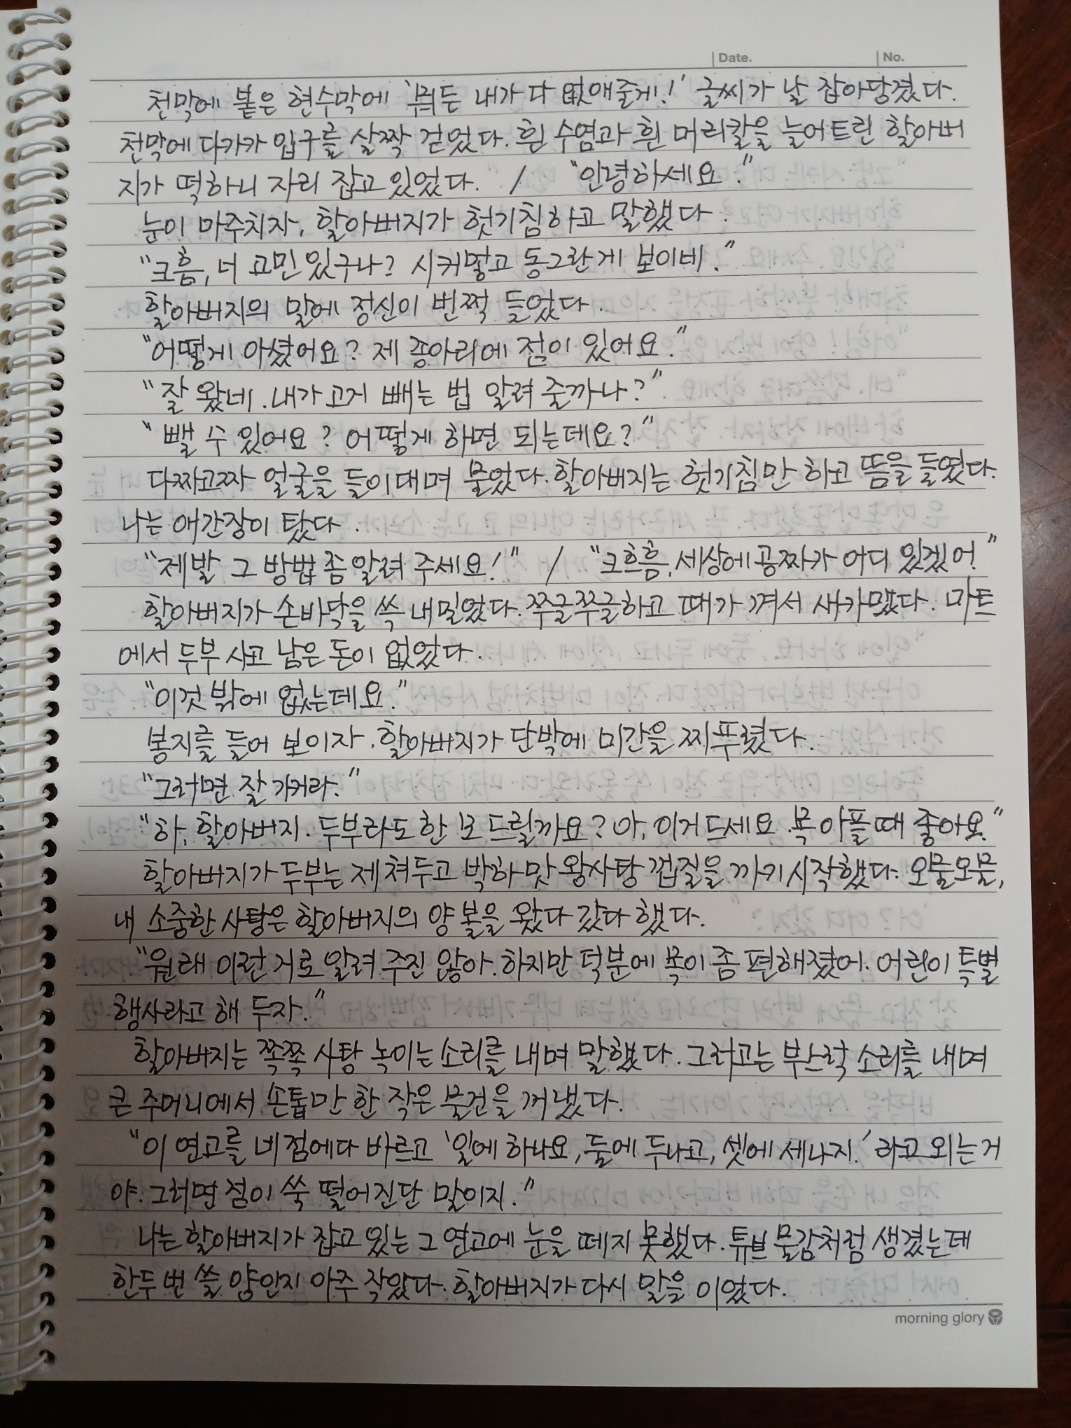 Date.
No.
천막에 붙은 현수막에 '뭐든 내가 다 없애줄게!' 글씨가 날 잡아당겼다.
천막에 다가가 입구를 살짝 걷었다. 흰 수염과 흰 머리칼을 늘어트린 할아버
지가 떡하니 자리 잡고 있었다. / "안녕하세요."
눈이 마주치자, 할아버지가 헛기침하고 말했다.
"크흠, 너 고민 있구나? 시커멓고 동그란 게 보이네."
할아버지의 말에 정신이 번쩍 들었다.
"어떻게 아셨어요? 제 종아리에 점이 있어요."
"잘 왔네. 내가 고거 빼는 법 알려 줄까나?"
"뺄 수 있어요? 어떻게 하면 되는데요?"
다짜고짜 얼굴을 들이대며 물었다. 할아버지는 헛기침만 하고 뜸을 들였다.
나는 애간장이 탔다.
"제발 그 방법 좀 알려 주세요!" / "크흐흠, 세상에 공짜가 어디 있겠어."
할아버지가 손바닥을 쓱 내밀었다. 쭈글쭈글하고 때가 껴서 새카맸다. 마트
에서 두부 사고 남은 돈이 없었다.
"이것 밖에 없는데요."
봉지를 들어 보이자, 할아버지가 단박에 미간을 찌푸렸다.
"그러면 잘 가거라."
"하, 할아버지. 두부라도 한 모 드릴까요? 아, 이거 드세요. 목 아플 때 좋아요."
할아버지가 두부는 제쳐두고 박하 맛 왕사탕 껍질을 까기 시작했다. 오물오물,
내 소중한 사탕은 할아버지의 양 볼을 왔다 갔다 했다.
"원래 이런 거로 알려 주진 않아. 하지만 덕분에 목이 좀 편해졌어. 어린이 특별
행사라고 해 두자."
할아버지는 쪽쪽 사탕 녹이는 소리를 내며 말했다. 그러고는 부스럭 소리를 내며
큰 주머니에서 손톱만 한 작은 물건을 꺼냈다.
"이 연고를 네 점에다 바르고 '일에 하나요, 둘에 두나고, 셋에 세나지.' 하고 외는 거
야. 그러면 점이 쑥 떨어진단 말이지."
나는 할아버지가 잡고 있는 그 연고에 눈을 떼지 못했다. 튜브 물감처럼 생겼는데
한두 번 쓸 양인지 아주 작았다. 할아버지가 다시 말을 이었다.
morning glory